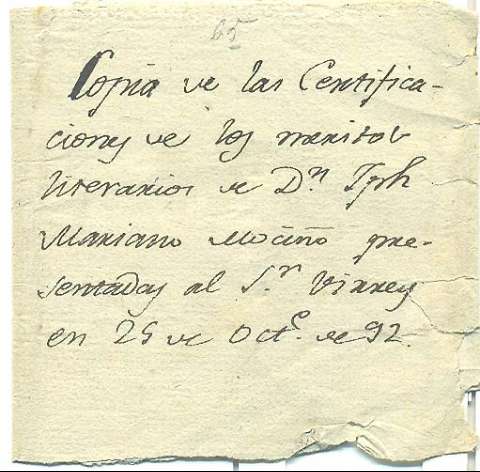 65
Copia de las Certifica-
ciones de los meritos
literarios de Dn Jph
Mariano Mociño pre-
sentadas al Sr Virrey
en 25 de Octe de 92.